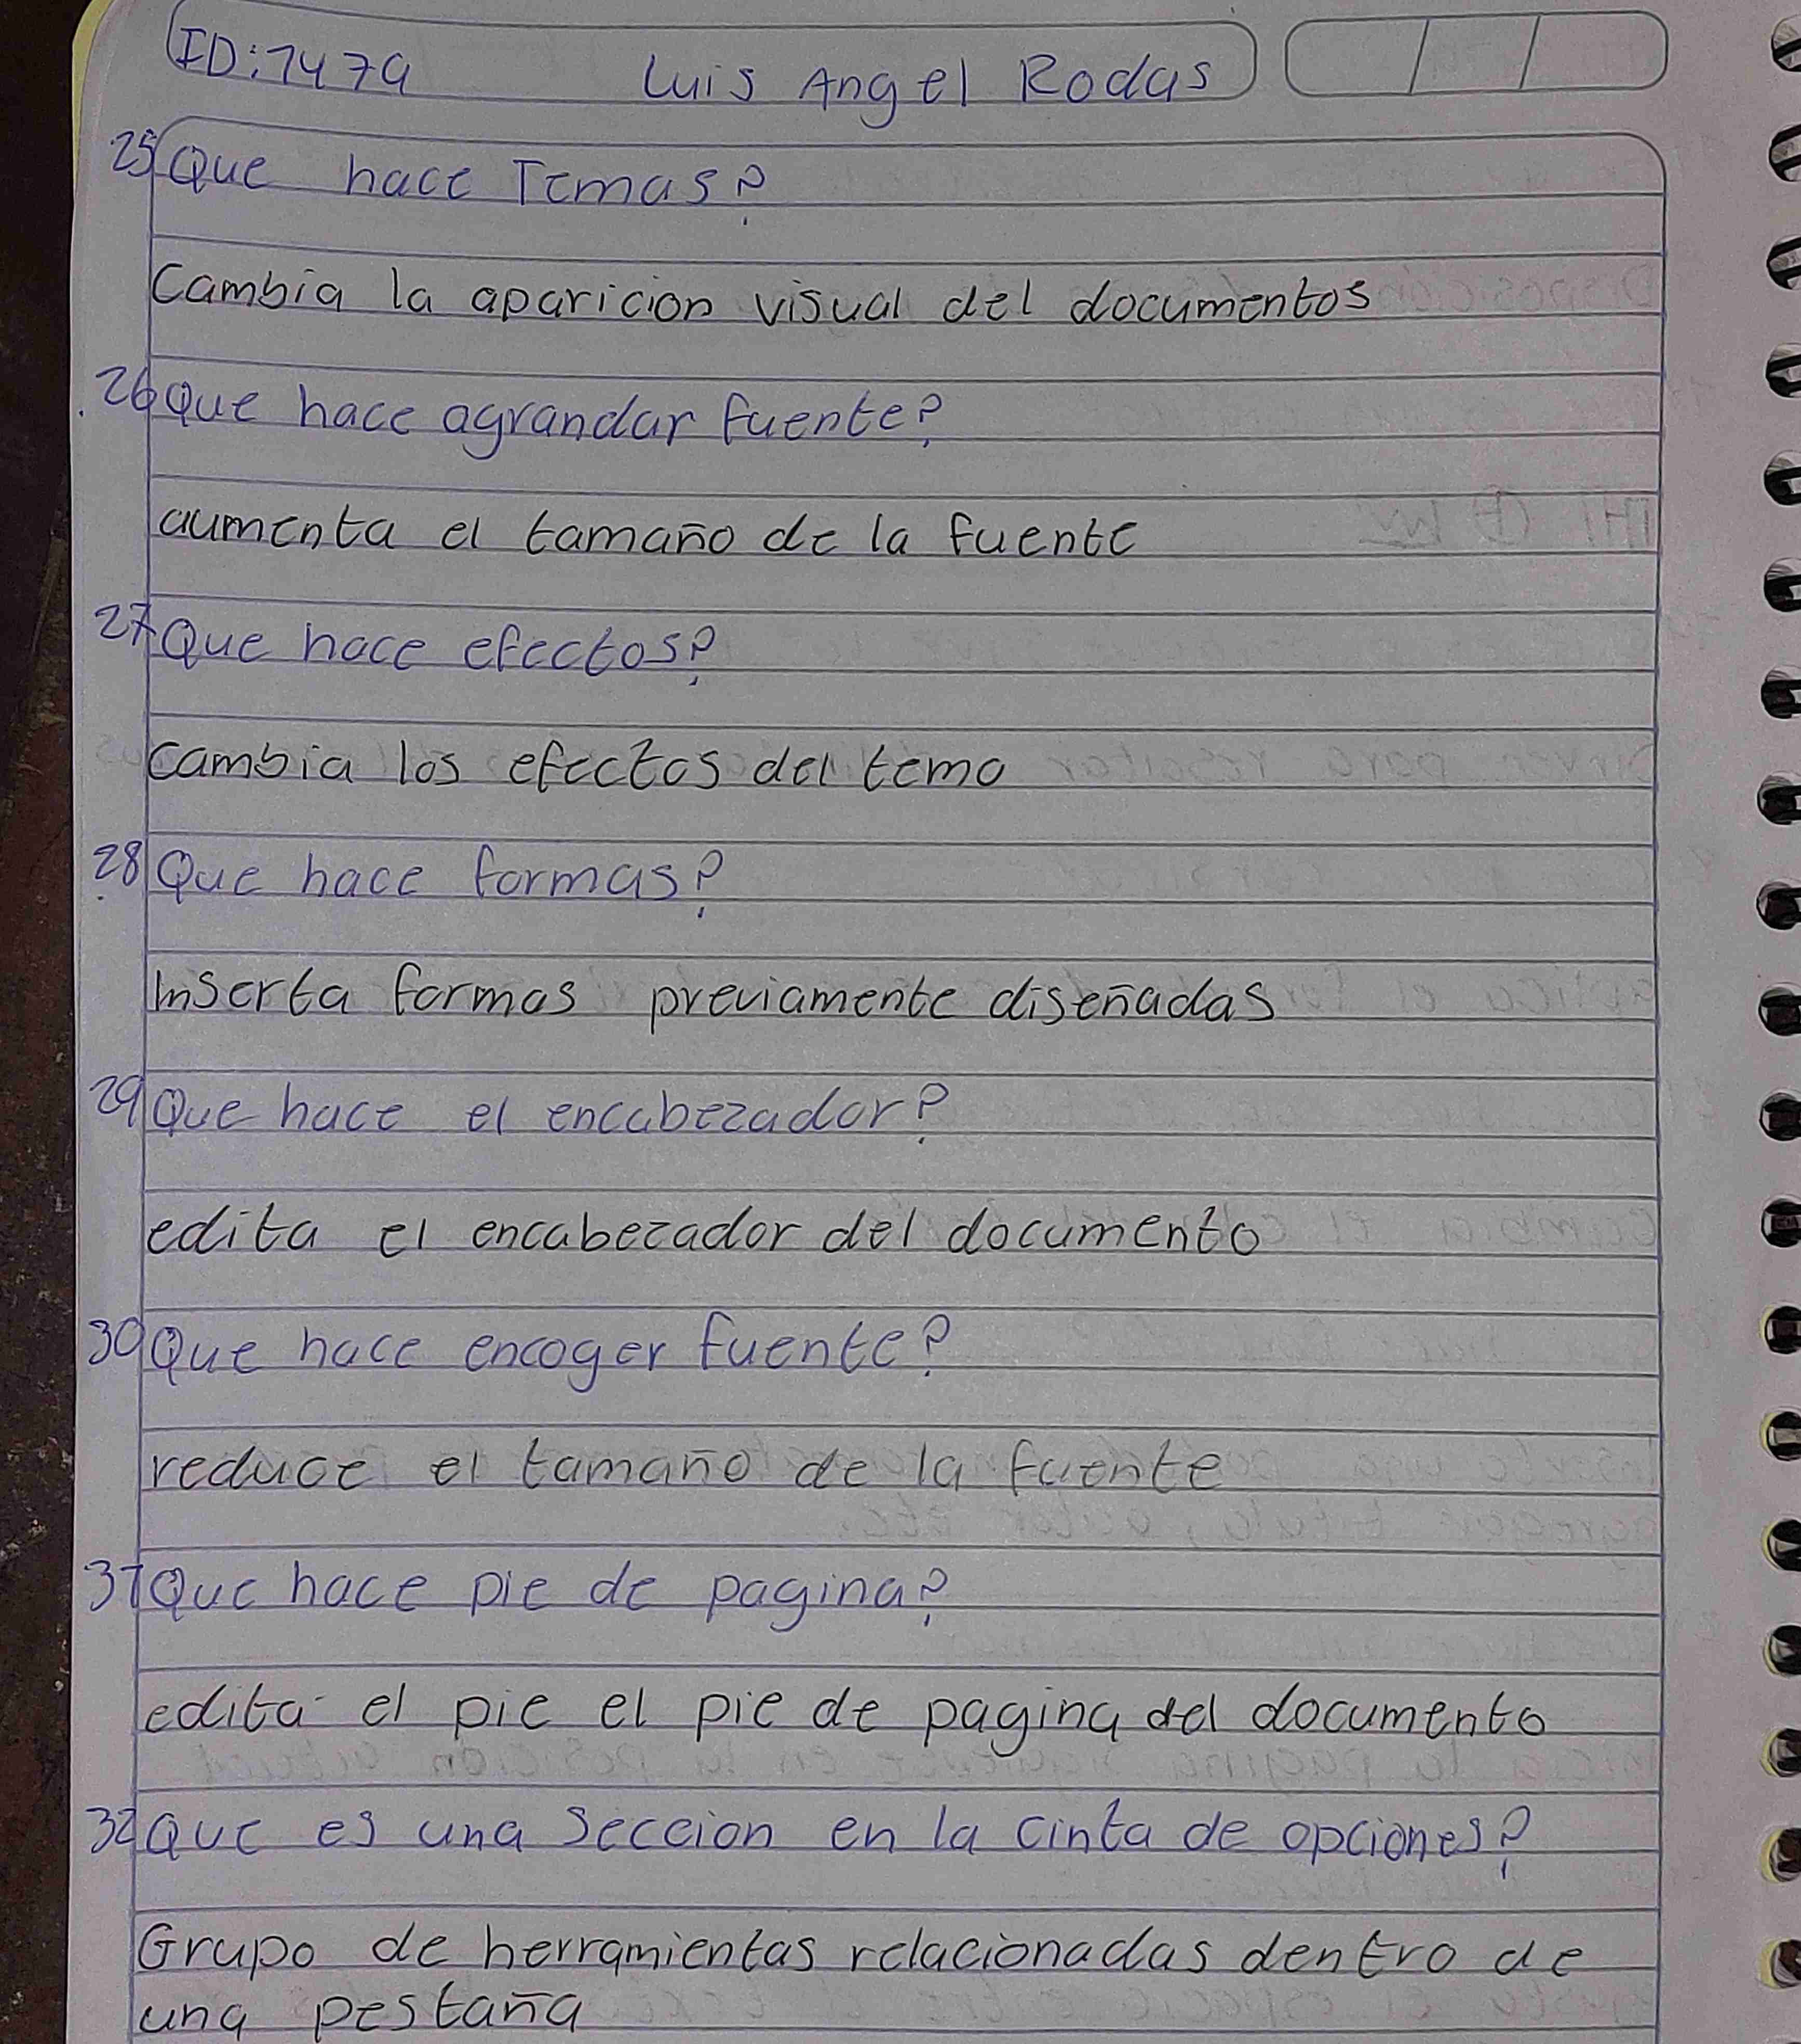 ID: 7479 Luis Angel Rodas
25 Que hace Temas?
Cambia la aparicion visual del documentos
26 Que hace agrandar fuente?
aumenta el tamaño de la fuente
27 Que hace efectos?
Cambia los efectos del tema
28 Que hace formas?
Inserta formas previamente diseñadas
29 Que hace el encabezador?
edita el encabezador del documento
30 Que hace encoger fuente?
reduce el tamaño de la fuente
31 Que hace pie de pagina?
edita el pie el pie de pagina del documento
32 Que es una seccion en la cinta de opciones?
Grupo de herramientas relacionadas dentro de
una pestaña